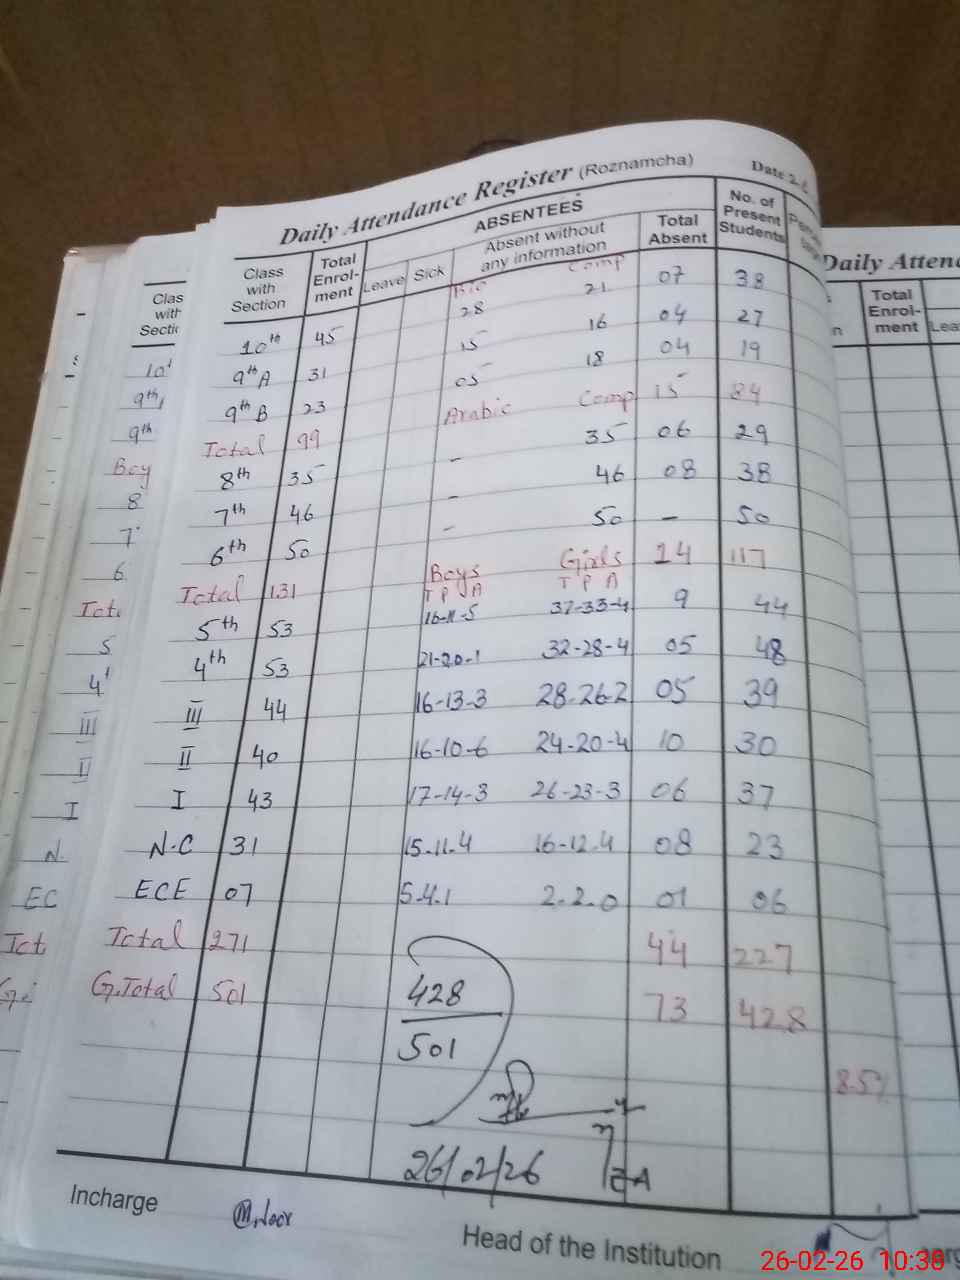 Daily Attendance Register (Roznamcha) Date
Class with Section Total Enrol-ment ABSENTEES Leave Sick Absent without any information Total Absent No. of Present Students
Bio Comp
10th 45 28 21 07 38
9th A 31 15 16 04 27
9th B 23 05 18 04 19
Total 99 Arabic Comp 15 84
8th 35 - 35 06 29
7th 46 - 46 08 38
6th 50 - 50 - 50
Total 131 Boys Girls 14 117
T P A T P A
5th 53 16-11-5 37-33-4 9 44
4th 53 21-20-1 32-28-4 05 48
III 44 16-13-3 28-26-2 05 39
II 40 16-10-6 24-20-4 10 30
I 43 17-14-3 26-23-3 06 37
N.C 31 15-11-4 16-12-4 08 23
ECE 07 5-4-1 2-2-0 01 06
Total 271 44 227
G.Total 501 73 428
428
501
85%
26/02/26
Incharge
Head of the Institution
Daily Atten
Total Enrol-ment
Lea
Clas
with
Sectic
9th
Boy
8
7
6
Tot.
5
III
II
I
N.
EC
Tot
26-02-26 10:38